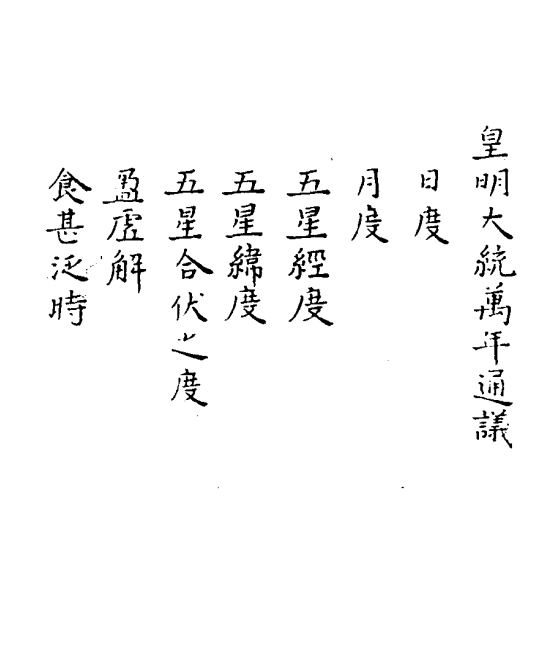 皇明大統萬年通議
日度
月度
五星經度
五星緯度
五星合伏之度
盈虛解
食甚泛時